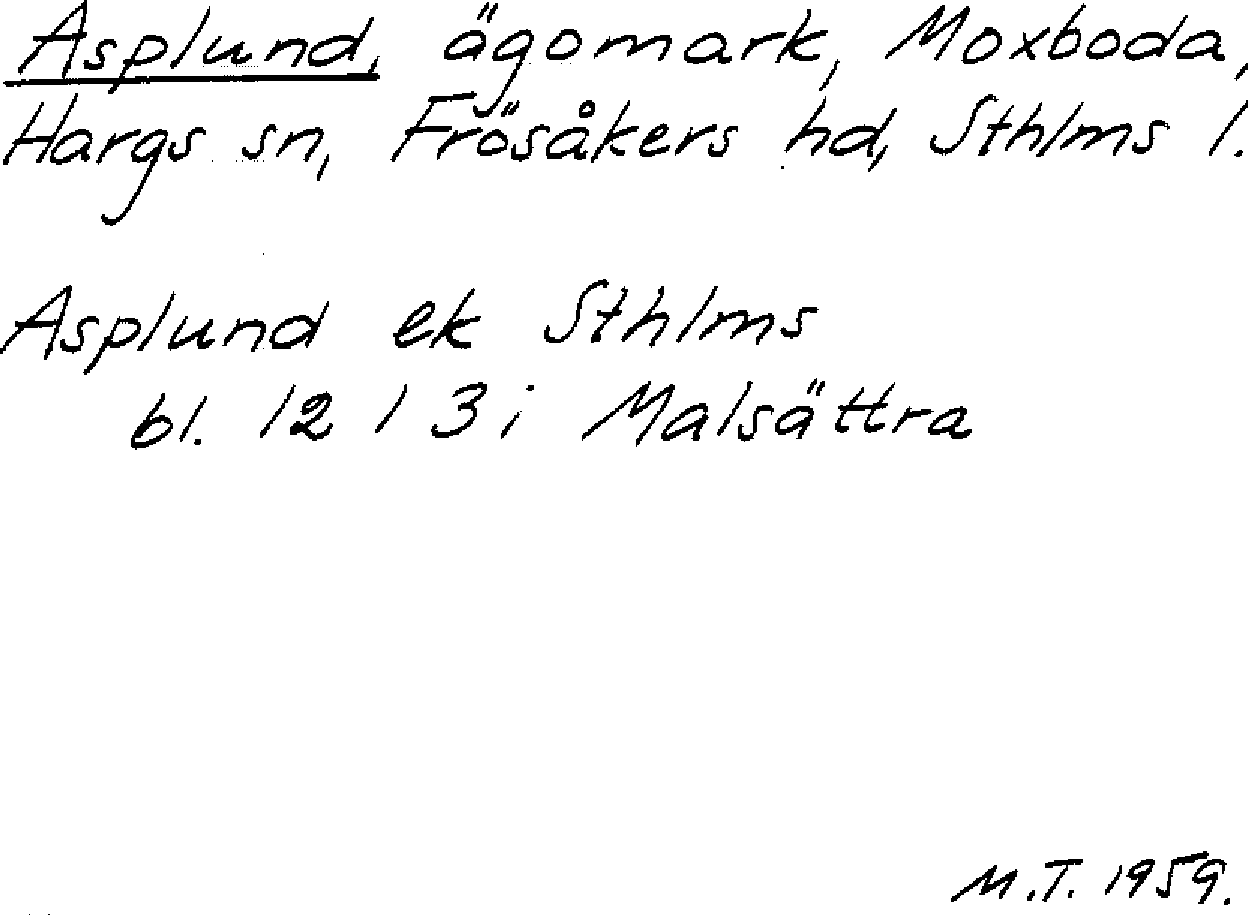 Asplund, ägomark, Moxboda,
Hargs sn, Frösåkers hd, Sthlms l.
Asplund ek Sthlms
bl. 12 I 3 i Malsättra
M.T. 1959.